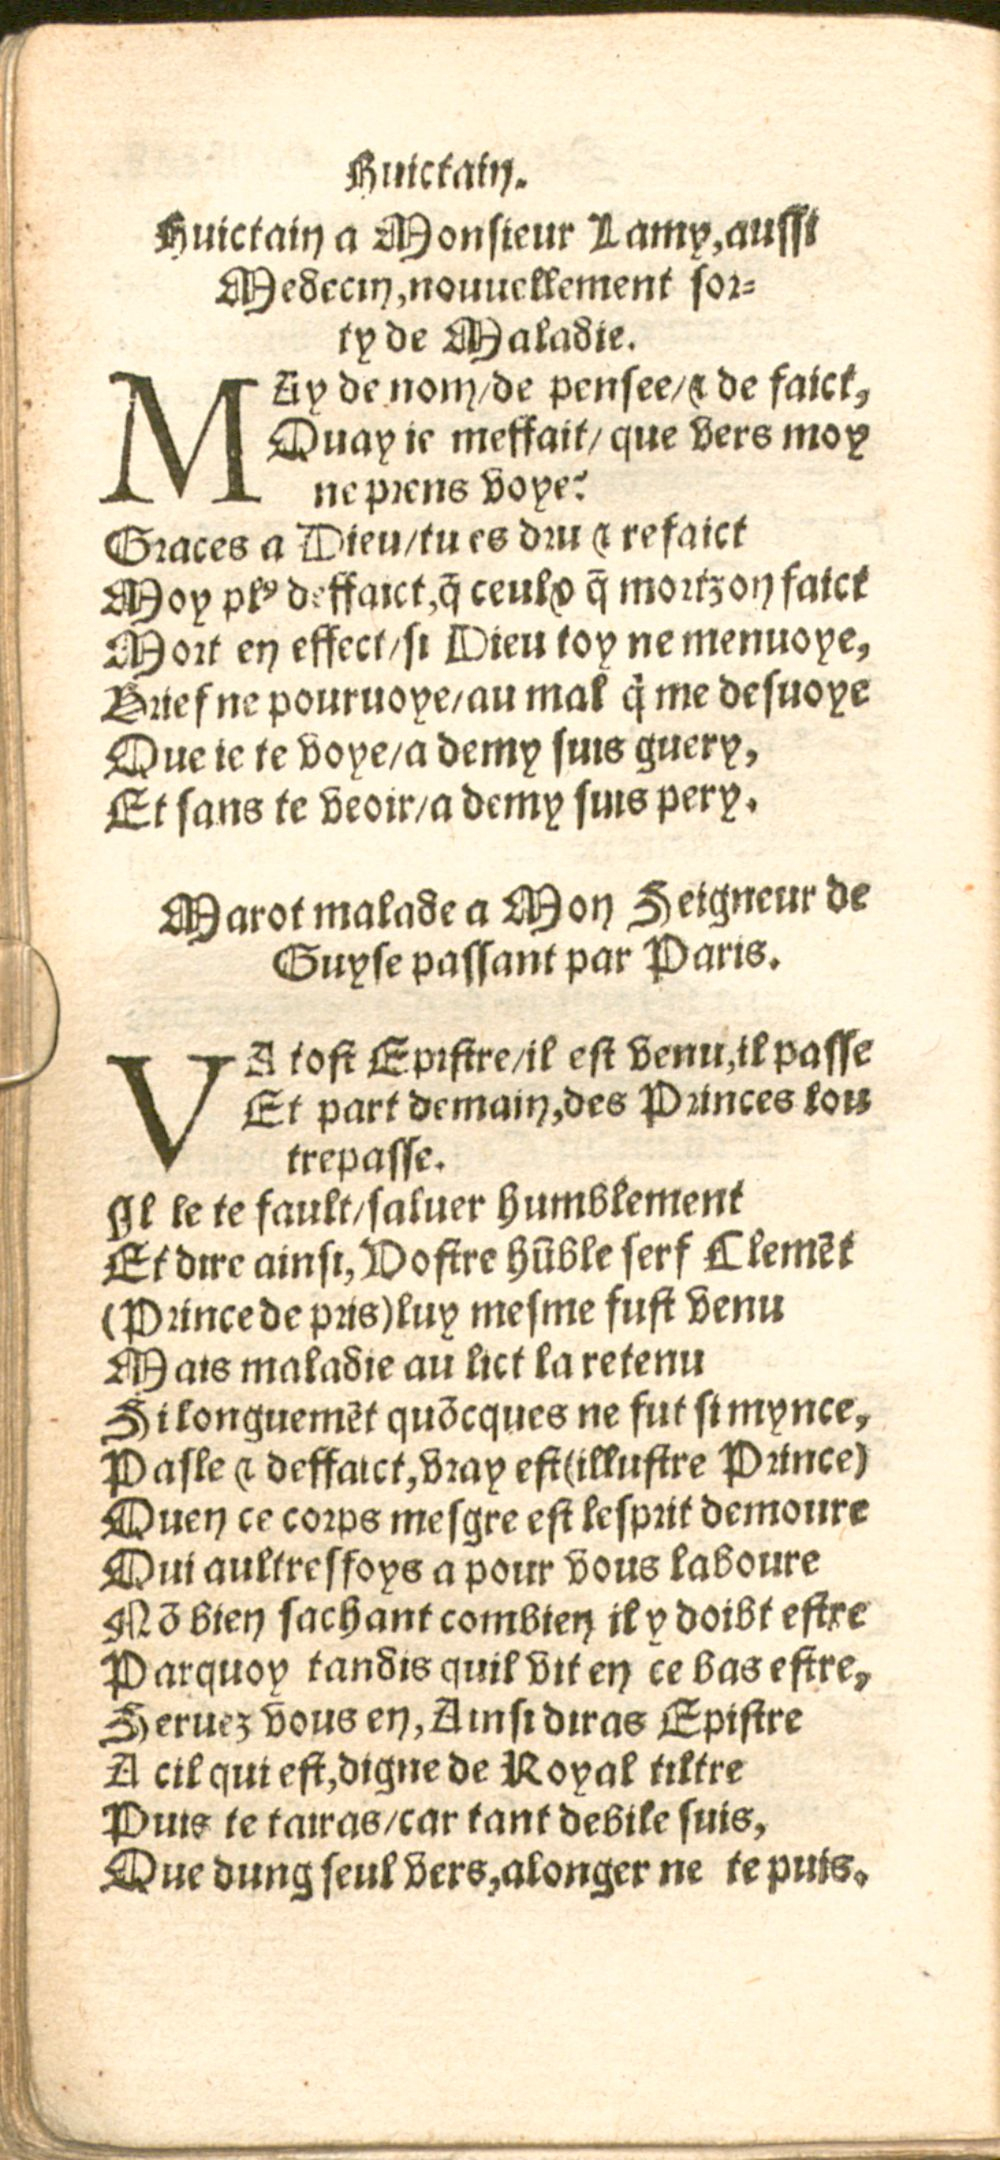 Huictain.
Huictain a Monsieur Lamy, aussi
Medecin, nouuellement sor-
ty de Maladie.
MAy de nom/de pensee/⁊ de faict,
Quay ie meffait/ que vers moy
ne prens voye?
Graces a Dieu/tu es dru ⁊ refaict
Moy plꝰ deffaict, q̄ ceulx q̄ mortz on faict
Mort en effect/si Dieu toy ne menuoye,
Brief ne pouruoye/au mal q̇ me desuoye
Que ie te voye/a demy suis guery,
Et sans te veoir/a demy suis pery.
Marot malade a Mon Seigneur de
Guyse passant par Paris.
VA tost Epistre/il est venu, il passe
Et part demain, des Princes lou
trepasse.
Il le te fault/saluer humblement
Et dire ainsi, Vostre hūble serf Clemēt
(Prince de pris) luy mesme fust venu
Mais maladie au lict la retenu
Si longuemēt quōcques ne fut si mynce,
Pasle ⁊ deffaict, vray est (illustre Prince)
Quen ce corps mesgre est lesprit demoure
Qui aultresfoys a pour vous laboure
Nō bien sachant combien il y doibt estre
Parquoy tandis quil vit en ce bas estre,
Seruez vous en, Ainsi diras Epistre
A cil qui est, digne de Royal tiltre
Puis te tairas/car tant debile suis,
Que dung seul vers, alonger ne te puis.